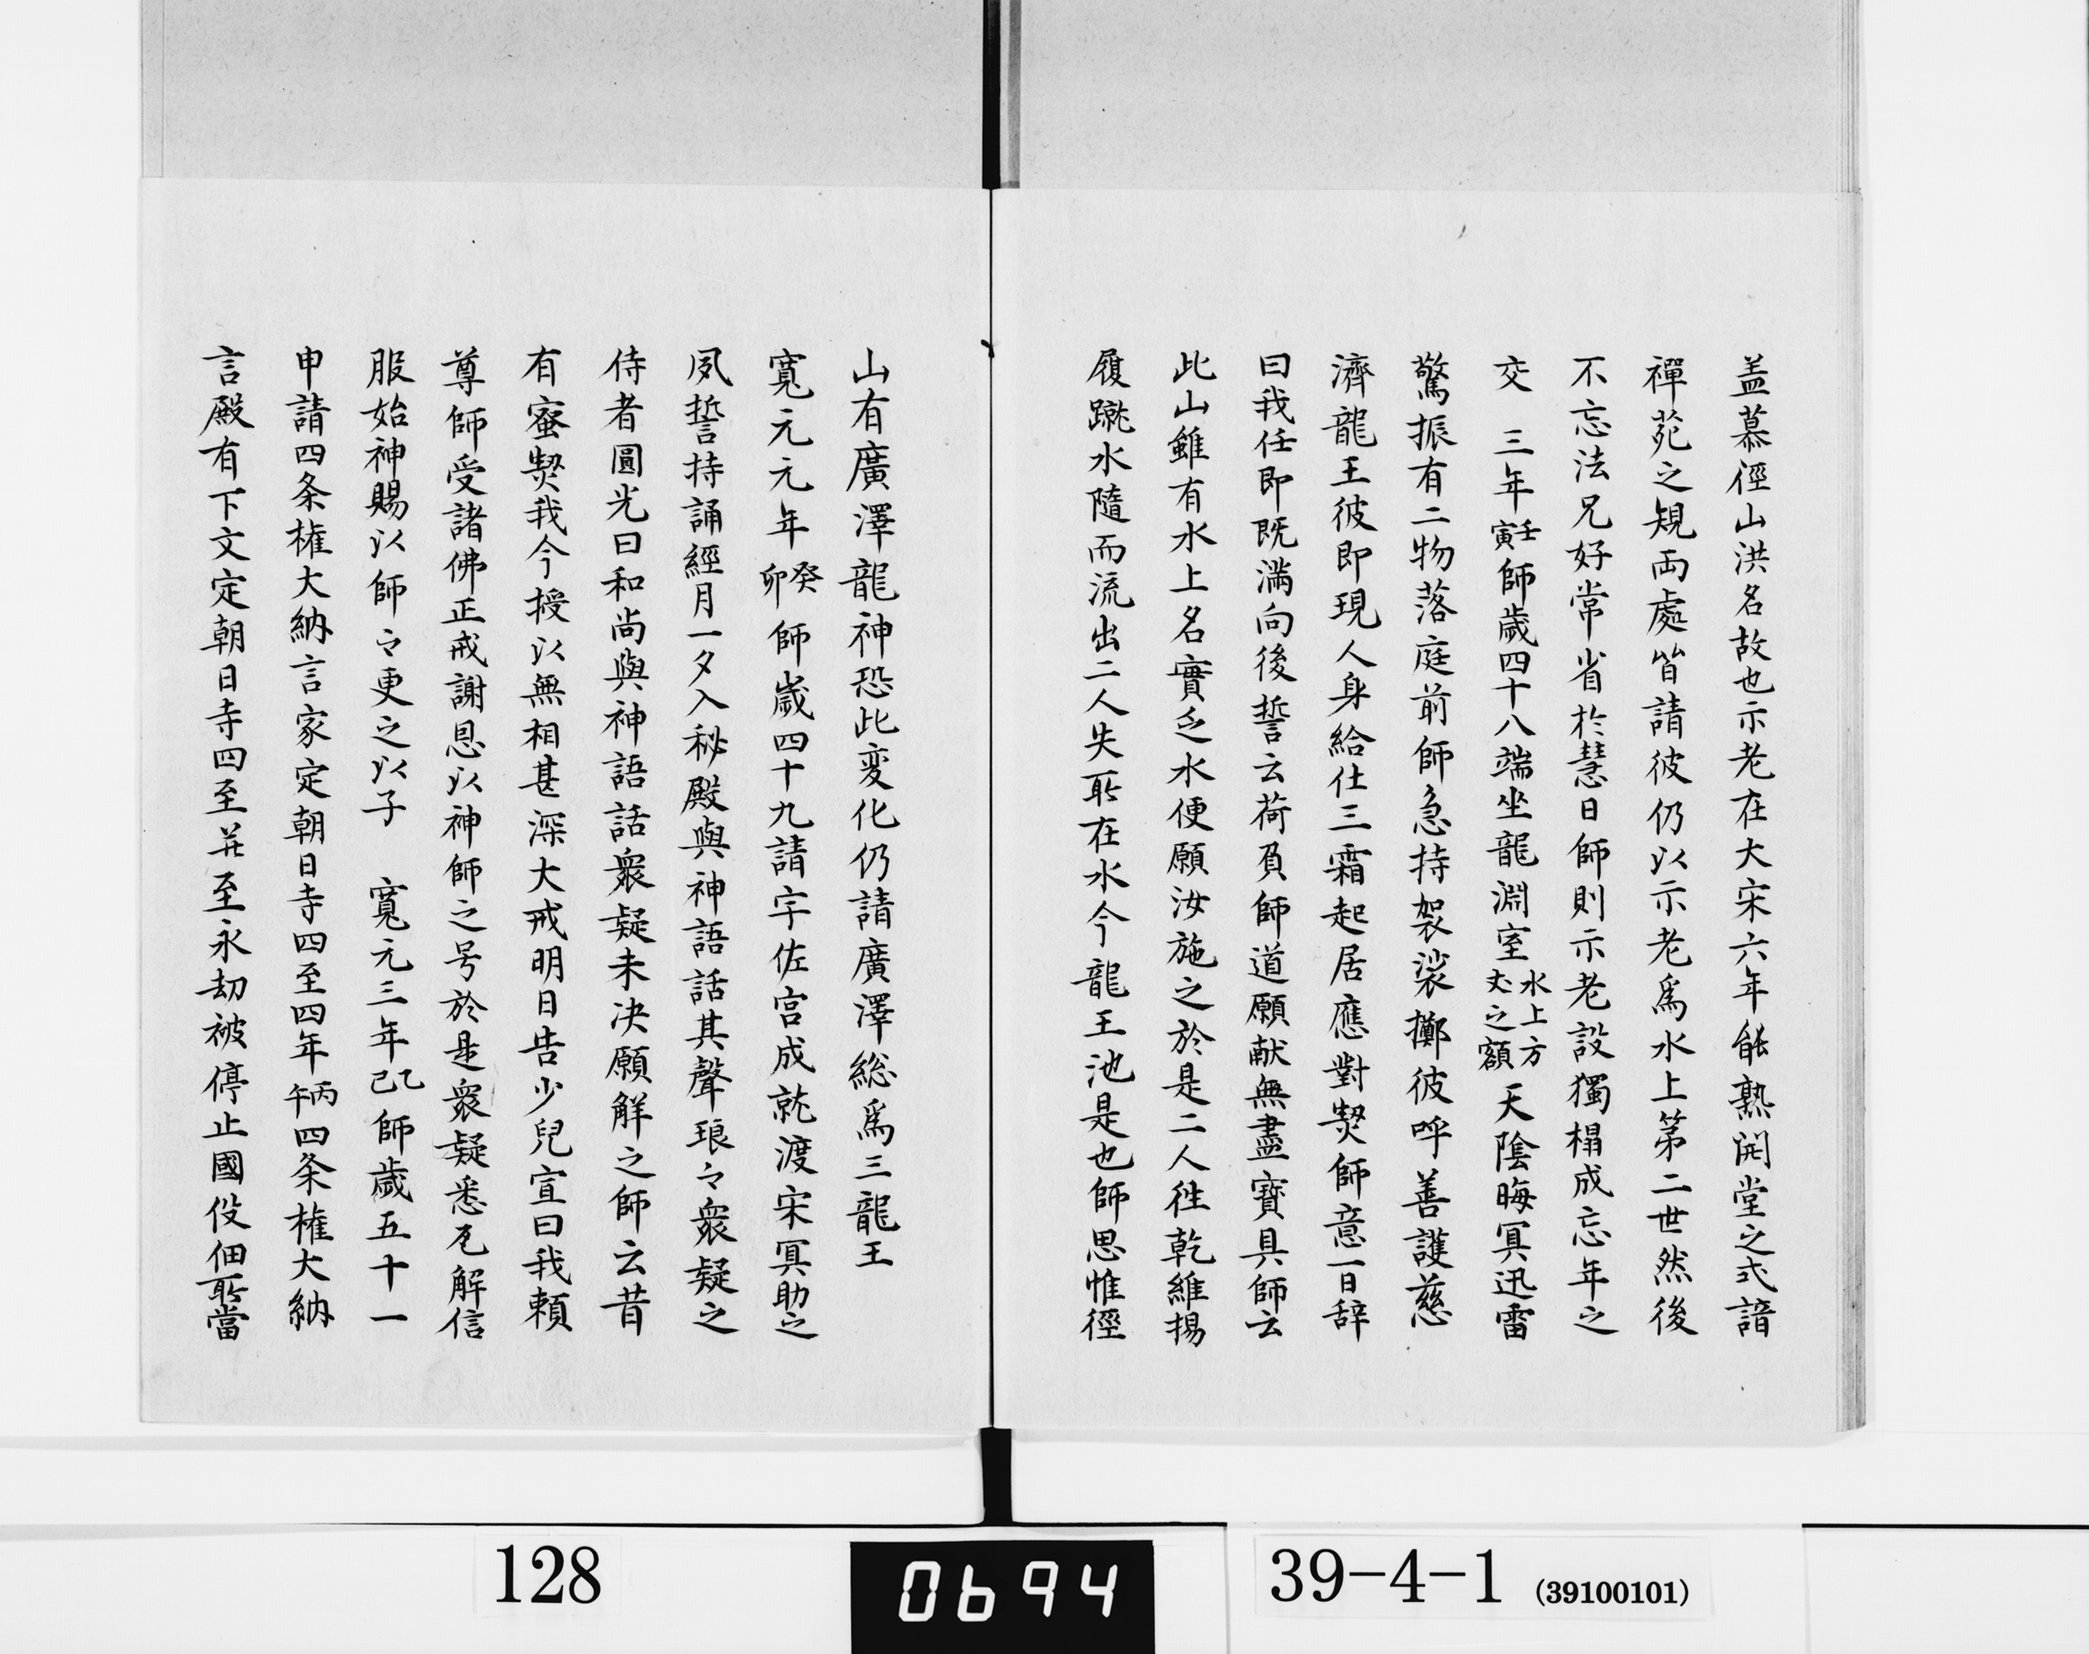 盖慕徑山洪名故也示老在大宋六年能熟開堂之式諳
禪苑之規両處皆請彼仍以示老爲水上第二世然後
不忘法兄好常省於慧日師則示老設獨榻成忘年之
交　三年壬寅師歳四十八端坐龍淵室水上方丈之額天陰晦冥迅雷
驚振有二物落庭前師急持袈裟擲彼呼善護慈
濟龍王彼即現人身給仕三霜起居應對契師意一日辞
曰我任即既満向後誓云荷負師道願献無盡寳具師云
此山雖有水上名實乏水便願汝施之於是二人徃乾維揚
履蹴水隨而流出二人失所在水今龍王池是也師思惟徑
山有廣澤龍神恐此変化仍請廣澤総爲三龍王
寛元元年癸卯師歳四十九請宇佐宮成就渡宋冥助之
夙誓持誦經月一夕入秘殿與神語話其聲琅々衆疑之
侍者圓光曰和尚與神語話衆疑未决願解之師云昔
有蜜契我今授以無相甚深大戒明日告少兒宣曰我頼
尊師受諸佛正戒謝恩以神師之号於是衆疑悉尾解信
服始神賜以師々更之以子　寛元三年乙巳師歳五十一
申請四条権大納言家定朝日寺四至四年丙午四条権大納
言殿有下文定朝日寺四至并至永劫被停止國役佃所當
128
0694
39-4-1 (39100101)